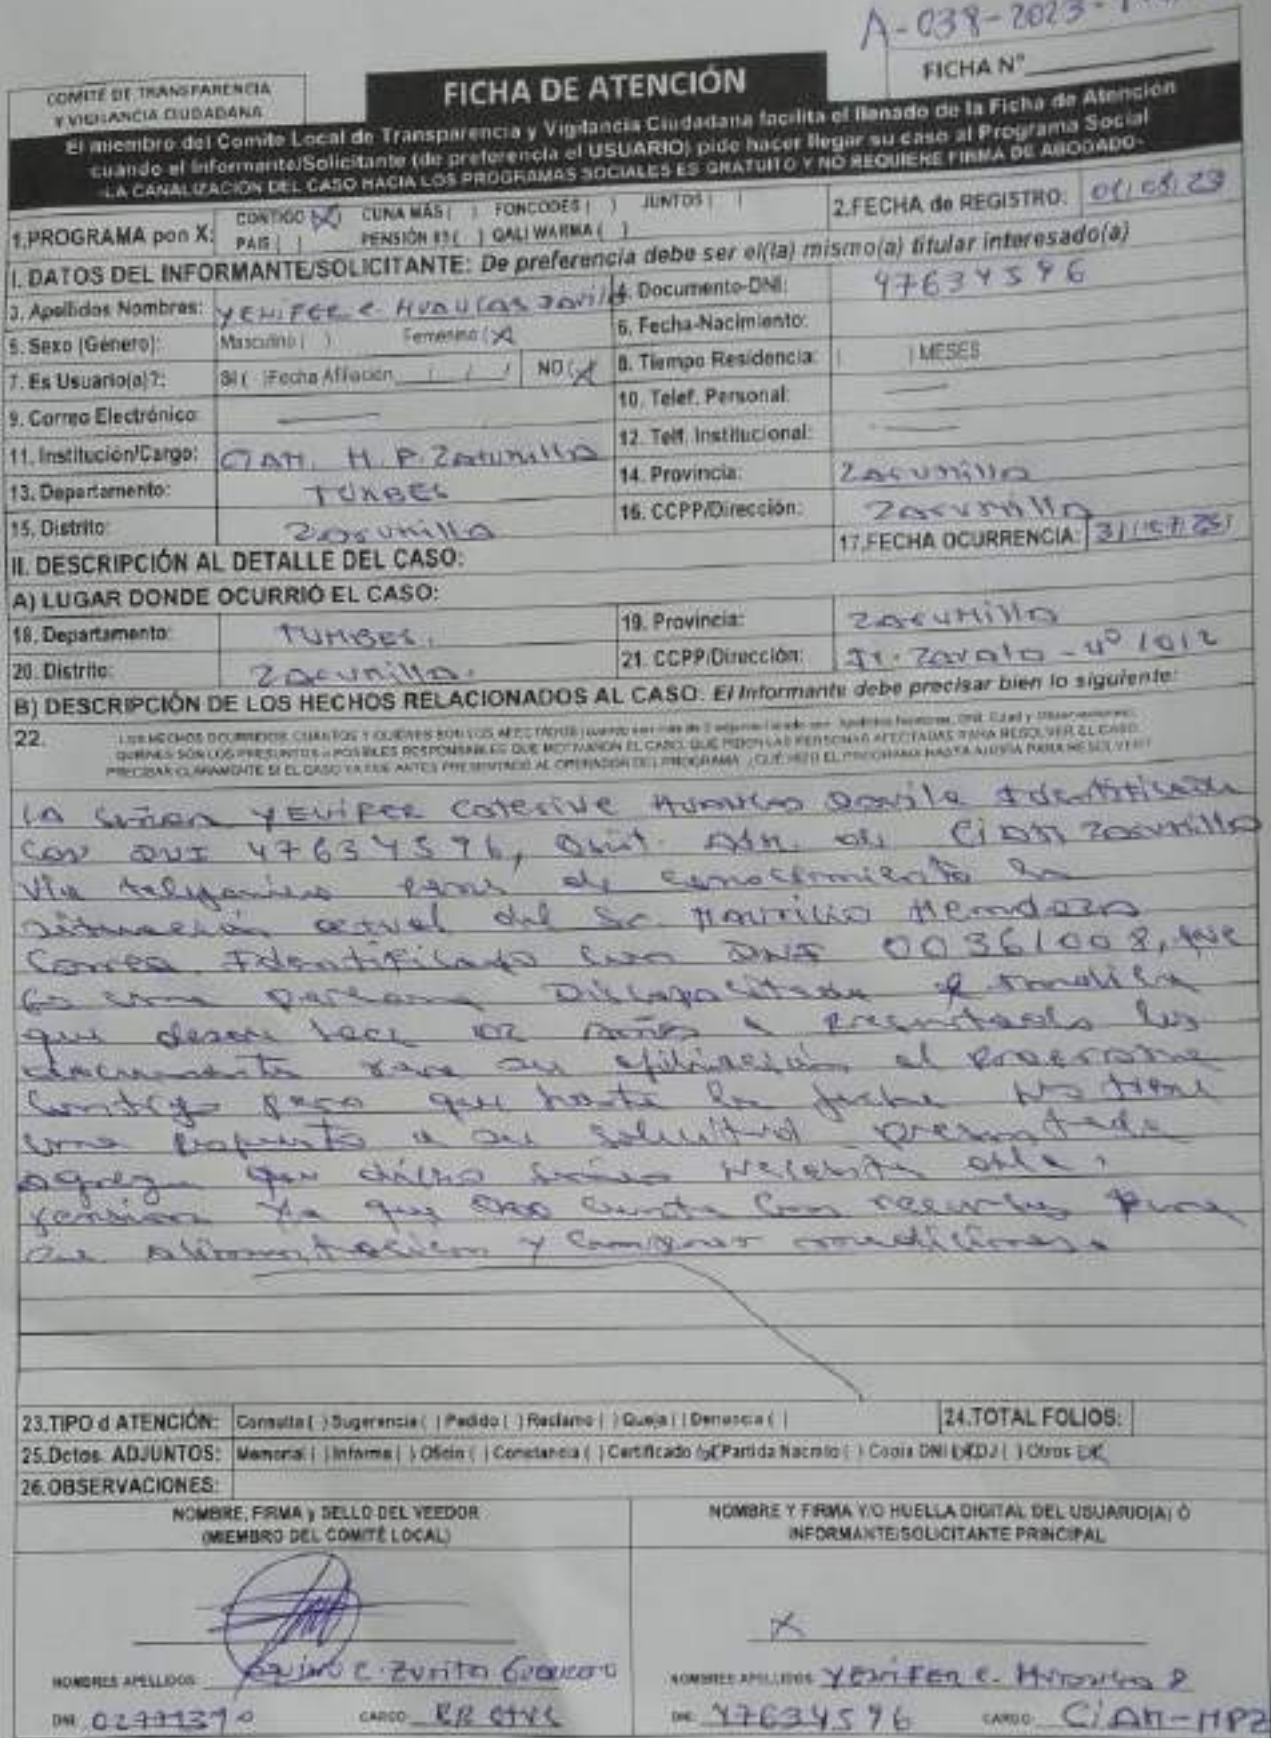 A-038-2023-
COMITÉ DE TRANSPARENCIA
Y VIGILANCIA CIUDADANA
FICHA DE ATENCIÓN
FICHA N°
El miembro del Comite Local de Transparencia y Vigilancia Ciudadana facilita el llenado de la Ficha de Atención
cuándo el Informante/Solicitante (de preferencia el USUARIO) pide hacer llegar su caso al Programa Social
-LA CANALIZACIÓN DEL CASO HACIA LOS PROGRAMAS SOCIALES ES GRATUITO Y NO REQUIERE FIRMA DE ABOGADO-
1.PROGRAMA pon X: CONTIGO (X) CUNA MÁS ( ) FONCODES ( ) JUNTOS ( )
PAIS ( ) PENSIÓN 65 ( ) QALI WARMA ( )
2.FECHA de REGISTRO: 01/08/23
I. DATOS DEL INFORMANTE/SOLICITANTE: De preferencia debe ser el(la) mismo(a) titular interesado(a)
3. Apellidos Nombres: YENIFER C. 4. Documento-DNI: 47634596
5. Sexo (Género): Masculino ( ) Femenino (X) 6. Fecha-Nacimiento:
7. Es Usuario(a)?: SI ( )Fecha Afiliación / / NO (X) 8. Tiempo Residencia: ( ) MESES
9. Correo Electrónico: 10. Telef. Personal:
11. Institución/Cargo: CIAM. M.P. Zarumilla 12. Telf. Institucional:
13. Departamento: TUMBES 14. Provincia: Zarumilla
15. Distrito: Zarumilla 16. CCPP/Dirección: Zarumilla
II. DESCRIPCIÓN AL DETALLE DEL CASO: 17.FECHA OCURRENCIA: 31/07/23
A) LUGAR DONDE OCURRIÓ EL CASO:
18. Departamento: TUMBES. 19. Provincia: Zarumilla
20. Distrito: Zarumilla. 21. CCPP/Dirección: N° 1012
B) DESCRIPCIÓN DE LOS HECHOS RELACIONADOS AL CASO. El Informante debe precisar bien lo siguiente:
22.
QUIÉNES SON LOS PRESUNTOS o POSIBLES RESPONSABLES QUE MOTIVARON EL CASO. QUE PIDEN LAS PERSONAS AFECTADAS PARA RESOLVER EL CASO.
PRECISAR CLARAMENTE SI EL CASO YA FUE ANTES PRESENTADO AL OPERADOR DEL PROGRAMA. ¿QUÉ HIZO EL PROGRAMA HASTA AHORA PARA RESOLVER?
LA Señora YENIFER Identificada
con DNI 47634596, CIAM Zarumilla
Via pone de conocimiento la
situación actual del Sr. Mendoza
Correa Identificado con DNI 00361008, que
Es una persona Discapacitada
que desde hace 02 años a presentado los
documentos para su afiliación al programa
Contigo pero que hasta la fecha No tiene
una respuesta a su solicitud presentada
agrega que dicho señor Necesita
pension ya que no cuenta con recursos para
su alimentación y comprar medicinas.
23.TIPO d ATENCIÓN: Consulta ( ) Sugerencia ( ) Pedido ( ) Reclamo ( ) Queja ( ) Denuncia ( ) 24.TOTAL FOLIOS:
25.Dctos. ADJUNTOS: Memorial ( ) Informe ( ) Oficio ( ) Constancia ( ) Certificado (X) Partida Nacmto ( ) Copia DNI (X) DJ ( ) Otros (X)
26.OBSERVACIONES:
NOMBRE, FIRMA y SELLO DEL VEEDOR
(MIEMBRO DEL COMITÉ LOCAL)
NOMBRE Y FIRMA Y/O HUELLA DIGITAL DEL USUARIO(A) Ó
INFORMANTE/SOLICITANTE PRINCIPAL
X
NOMBRES APELLIDOS: C. Zurita Guerrero
NOMBRES APELLIDOS: YENIFER C.
DNI: CARGO:
DNI: 47634596 CARGO: CIAM-MPZ